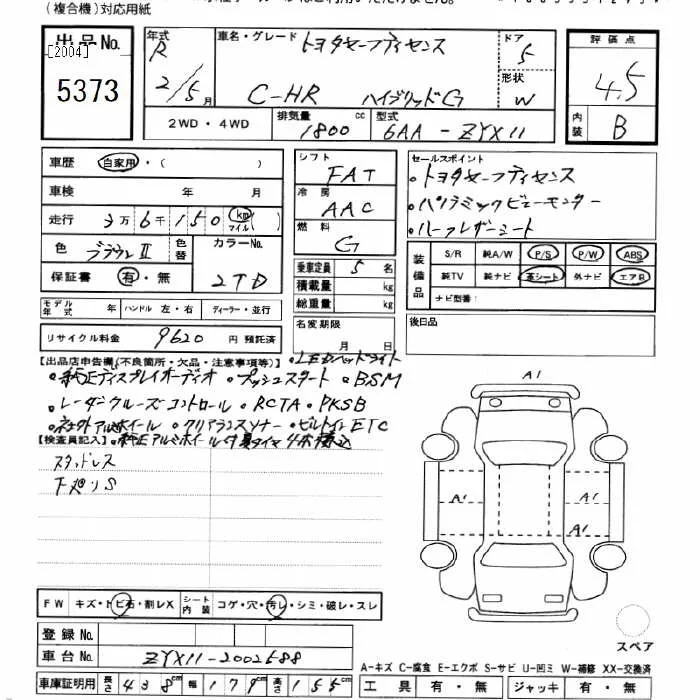 (複合機)対応用紙
出品No.
[2004]
5373
年式
R
2/5月
車名・グレード
トヨタセーフティセンス
C-HR ハイブリッドG
ドア
5
形状
W
評価点
4.5
内装
B
2WD・4WD
排気量
1800cc
型式
6AA-ZYX11
車歴 自家用・( )
車検 年 月
走行 3万6千150 km マイル( )
色 ブラウンⅡ
色替
カラーNo.
2TD
保証書 有・無
シフト
FAT
冷房
AAC
燃料
G
乗車定員 5名
積載量 kg
総重量 kg
セールスポイント
・トヨタセーフティセンス
・パノラミックビューモニター
・ハーフレザーシート
装備品
S/R 純A/W P/S P/W ABS
純TV 純ナビ 革シート 外ナビ エアB
ナビ型番:
モデル年式 年 ハンドル 左・右 ディーラー・並行
リサイクル料金 9620円 預託済
名変期限
月 日
後日品
【出品店申告欄(不良箇所・欠品・注意事項等)】・LEDヘッドライト
・純正ディスプレイオーディオ ・プッシュスタート ・BSM
・レーダークルーズコントロール ・RCTA ・PKSB
・クリアランスソナー ・ビルトインETC
【検査員記入】・純正アルミホイール付夏タイヤ4本積込
スタッドレス
下廻りS
A1
A1
A1
A1
FW キズ・トビ石・割レX
シート内装 コゲ・穴・汚レ・シミ・破レ・スレ
登録No.
車台No. ZYX11-2002588
車庫証明用 長さ 438cm 幅 179cm 高さ 155cm
スペア
A-キズ C-腐食 E-エクボ S-サビ U-凹ミ W-補修 XX-交換済
工具 有・無 ジャッキ 有・無